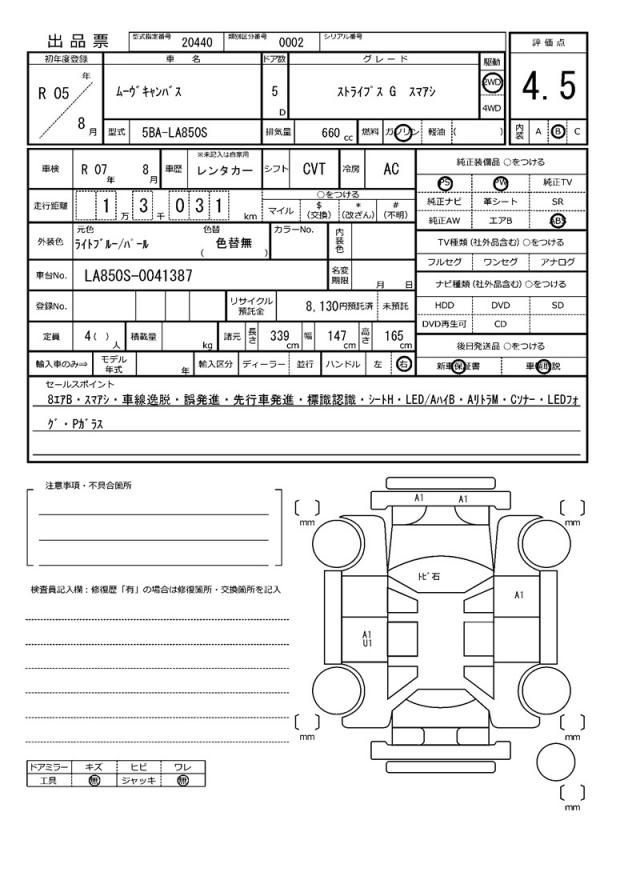 出品票 型式指定番号 20440 類別区分番号 0002 シリアル番号
評価点
初年度登録 車名 ドア数 グレード 駆動
R 05 年 8 月 ムーヴキャンバス 5 D ストライプス G スマアシ 2WD 4WD
4.5
型式 5BA-LA850S 排気量 660 cc 燃料 ガソリン 軽油 ( )
内装 A B C
車検 R 07 年 8 月 車歴 ※未記入は自家用 レンタカー シフト CVT 冷房 AC
純正装備品 ○をつける
PS PW 純正TV
純正ナビ 革シート SR
純正AW エアB ABS
走行距離 1 万 3 千 0 3 1 km
○をつける
マイル $ (交換) * (改ざん) # (不明)
外装色 元色 ライトブルー/パール 色替 ( 色替無 ) カラーNo. 内装色
TV種類 (社外品含む) ○をつける
フルセグ ワンセグ アナログ
車台No. LA850S-0041387 名変期限 月 日
ナビ種類 (社外品含む) ○をつける
HDD DVD SD
DVD再生可 CD
登録No. リサイクル預託金 8,130円預託済 未預託
定員 4( ) 人 積載量 kg 諸元 長さ 339 cm 幅 147 cm 高さ 165 cm
後日発送品 ○をつける
新車保証書 車輌取説
輸入車のみ⇒ モデル年式 年 輸入区分 ディーラー 並行 ハンドル 左 右
セールスポイント
8エアB・スマアシ・車線逸脱・誤発進・先行車発進・標識認識・シートH・LED/AハイB・AリトラM・Cソナー・LEDフォ
グ・Pガラス
注意事項・不具合箇所
検査員記入欄：修復歴「有」の場合は修復箇所・交換箇所を記入
ドアミラー キズ ヒビ ワレ
工具 無 ジャッキ 無
A1 A1
mm mm
トビ石
A1
A1
U1
mm mm
mm